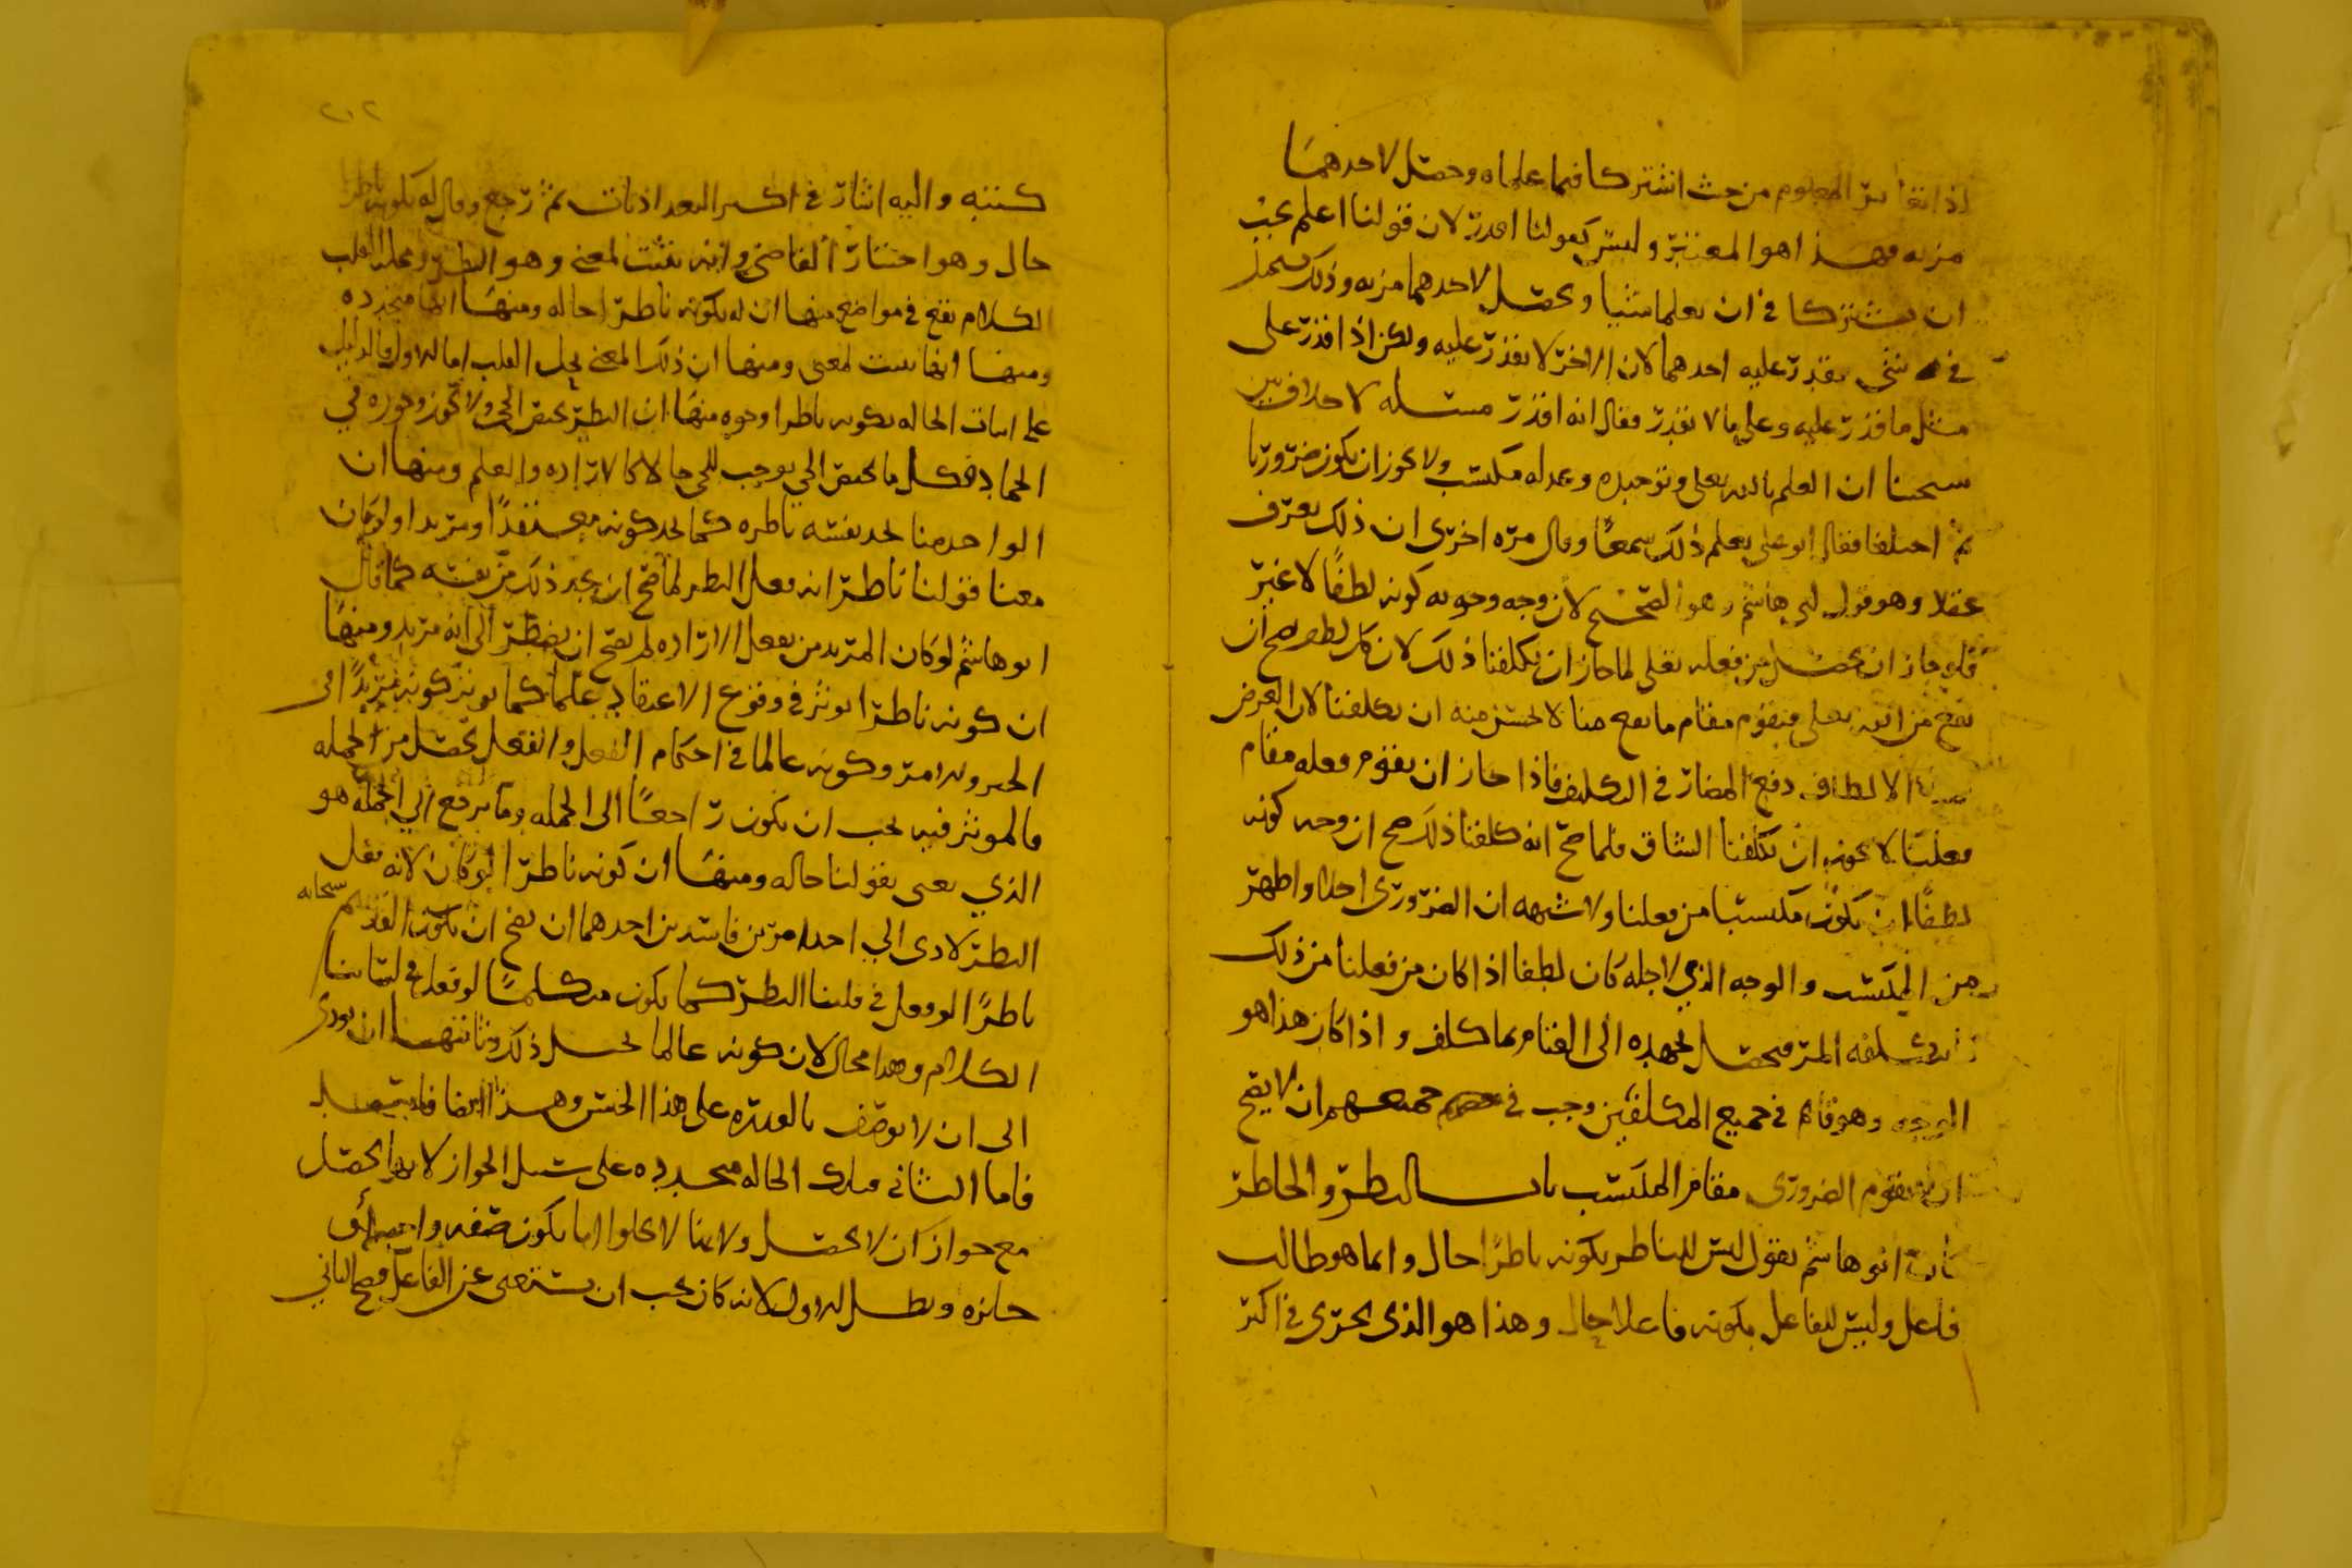 اذا تغاير المعلوم من حيث اشتركا فيما علماه وحصل لاحدهما
مزيه فهذا هو المعتبر وليس كقولنا اقدر لان قولنا اعلم يجب
ان يشتركا في ان يعلما شيئا ويحصل لاحدهما مزيه وذلك
في شي يقدر عليه احدهما لان الاخر لا يقدر عليه ولكن اذا قدر على
مثل ما قدر عليه وعلى ما لا يقدر فقال انه اقدر مسله لا خلاف بين
شيخينا ان العلم بالله تعلى وتوحيده وعدله مكتسب ولا يجوز ان يكون ضروريا
ثم اختلفا فقال ابو علي يعلم ذلك سمعا وقال مره اخرى ان ذلك يعرف
عقلا وهو قول ابي هاشم وهو الصحيح لان وجه وجوبه كونه لطفا لا غير
فلو جاز ان يحصل من فعله تعلى لما جاز ان يكلفنا ذلك لان كل لطف صح ان
يقع من الله تعلى فيقوم مقام ما يقع منا لا يحسن منه ان يكلفنا لان الغرض
الالطاف دفع المضار في التكليف فاذا جاز ان يقوم فعله مقام
فعلنا لا يجوز ان يكلفنا الشاق فلما صح انه كلفنا ذلك صح ان وجه كونه
لطفا ان يكون مكتسبا من فعلنا ولا شبهه ان الضروري اجلا واظهر
من المكتسب والوجه الذي لاجله كان لطفا اذا كان من فعلنا من ذلك
المر فيحصل بجهده الى القيام بما كلف واذا كان هذا هو
الوجه وهو قائم في جميع المكلفين وجب في جميعهم ان لا يصح
ان يقوم الضروري مقام المكتسب باب النظر والخاطر
ابو هاشم يقول ليس للناظر بكونه ناظرا حال وانما هو طالب
فاعل وليس للفاعل بكونه فاعلا حال وهذا هو الذي يجري في اكثر
٢٠٢
كتبه واليه اشار في اكثر البغداذيات ثم رجع وقال له بكونه ناظرا
حال وهو اختيار القاضي وانه يثبت لمعنى وهو النظر ومحله القلب
الكلام يقع في مواضع منها ان له بكونه ناظرا حاله ومنها انها متجدده
ومنها انها تثبت لمعنى ومنها ان ذلك المعنى يحل القلب اما الاول فالدليل
على اثبات الحاله بكونه ناظرا وجوه منها ان النظر يختص الحي ولا يجوز وجوده في
الجماد فكل ما يختص الحي يوجب للحي حالا كالاراده والعلم ومنها ان
الواحد منا يجد نفسه ناظره كما يجد كونه معتقدا ومريدا ولو كان
معنا قولنا ناظرا انه فعل النظر لما صح ان يجد ذلك من نفسه كما قال
ابو هاشم لو كان المريد من يفعل الاراده لم يصح ان يضطر الى انه مريد ومنها
ان كونه ناظرا يوثر في وقوع الاعتقاد علما كما يوثر كونه مريدا في
الخبر والامر وكونه عالما في احكام الفعل والفعل يحصل من الجمله
فالموثر فيه يجب ان يكون راجعا الى الجمله وما يرجع الى الجمله هو
الذي يعنى بقولنا حاله ومنها ان كونه ناظرا لو كان لانه فعل
النظر لادى الى احد امرين فاسدين احدهما ان يصح ان يكون القديم سبحانه
ناظرا لو فعل في قلبنا النظر كما يكون متكلما لو فعل في لساننا
الكلام وهذا محال لان كونه عالما يحيل ذلك وثانيهما ان يودي
الى ان لا يوصف بالقدره على هذا الجنس وهذا ايضا فاسد
فاما الثاني فتلك الحاله متجدده على سبيل الجواز لانها تحصل
مع جواز ان لا يحصل ولانها لا يخلوا اما يكون صفه واجبه او
جائزه وبطل الاول لانه كان يجب ان يستغني عن الفاعل فصح الثاني